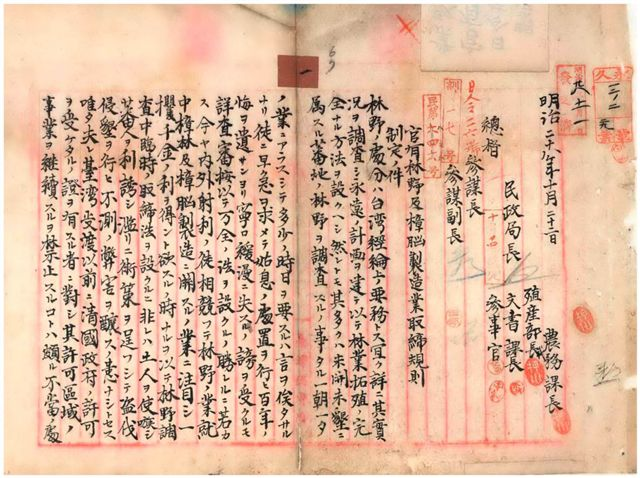 明治二十八年十月三十一日
農務課長
殖産部長
文書課長
民政局長
参事官
總督
參謀長
參謀副長
官有林野及樟脳製造業取締規則
制定ノ件
林野ノ處分ハ台湾經綸ノ要務ス宜ク詳ニ其實
況ヲ調査シ永遠ノ計画ヲ建テ以テ林業拓殖ノ完
全ナル方法ヲ設クヘシ然レトモ其多クハ未開未墾ニ
属スル蕃地ノ林野ヲ調査スルノ事タル一朝一夕
ノ業ニアラスシテ多少ノ時日ヲ要スルハ言ヲ俟タサル
ナリ徒ニ早急ヲ求メテ姑息ノ處置ヲ行ヒ百年ノ
悔ヲ遺サンヨリハ寧ロ緩漫ニ失スルノ謗ヲ受クルモ
詳査審悔以テ万全ノ法ヲ設クルノ勝レルニ若カ
ス今ヤ内外射利ノ徒相競フテ林野ノ業就
中樟林及樟脳製造ニ関スル業ニ注目シ一
攫千金ノ利ヲ得ント欲スルノ時ナルヲ以テ林野調
査中臨時取締法ヲ設クルニ非レハ土人ヲ使嗾シ
蕃人ヲ利誘シ濫リニ術策ヲ逞フシテ盗伐
侵墾ヲ行ヒ不測ノ弊害ヲ醸スノ患ナシトセス
唯タ夫レ臺湾受渡以前ニ清國政府ノ許可
ヲ受ケタル證ヲ有スル者ニ對シ其許可區域ノ
事業ヲ継續スルヲ禁止スルコトハ頗ル不當ノ處